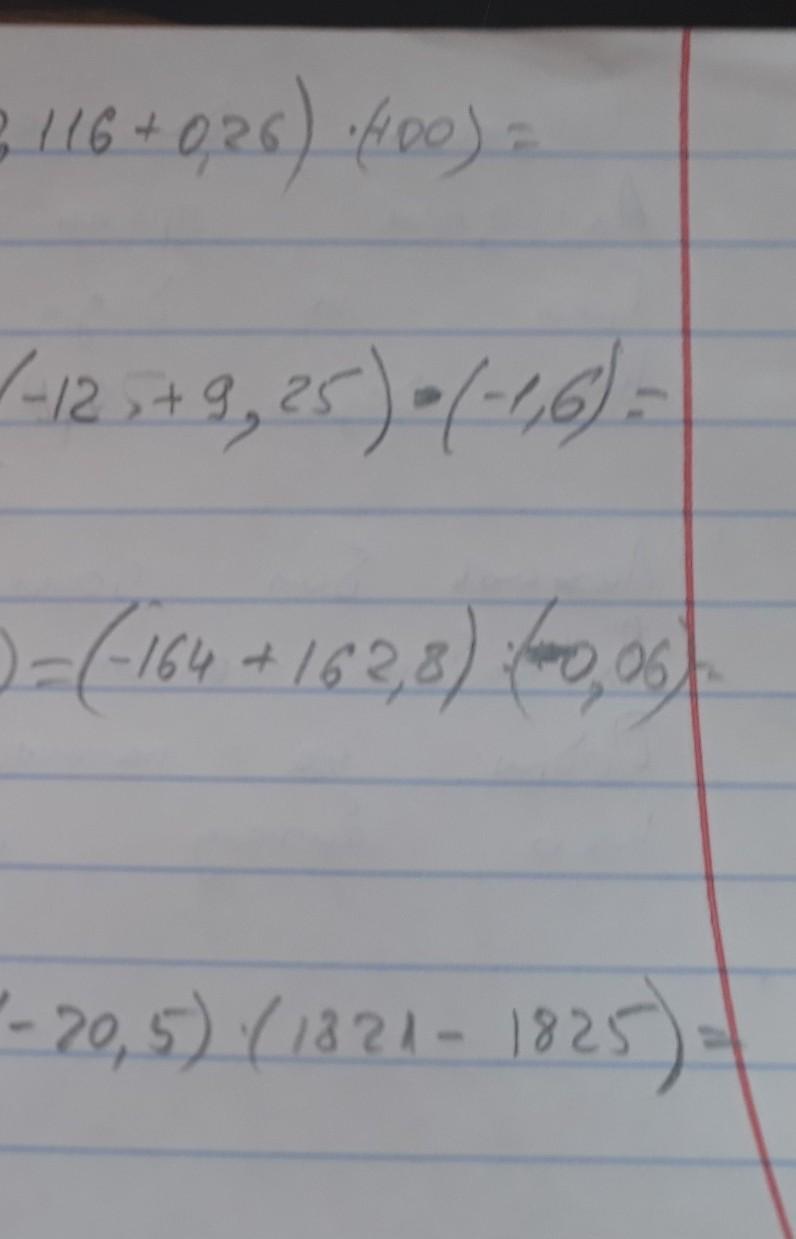 ,116+0,26)·(-100)=
(-12,+9,25)·(-1,6)=
)=(-164+162,8):(-0,06)=
(-20,5)·(1821-1825)=